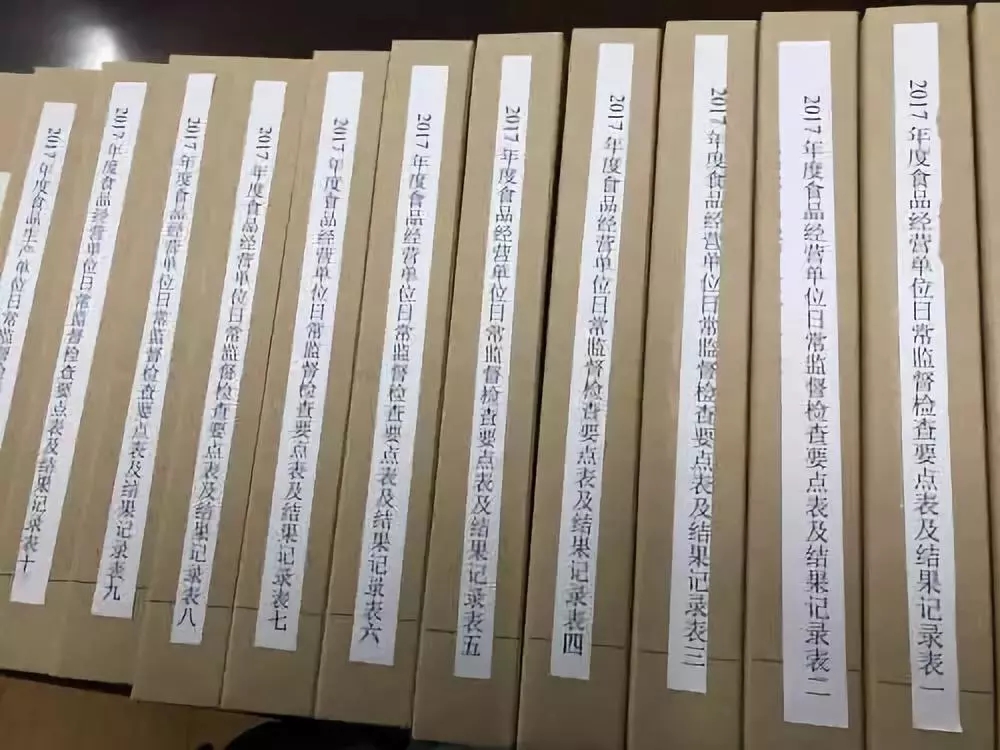 2017年度食品经营单位日常监督检查要点表及结果记录表一
2017年度食品经营单位日常监督检查要点表及结果记录表二
2017年度食品经营单位日常监督检查要点表及结果记录表三
2017年度食品经营单位日常监督检查要点表及结果记录表四
2017年度食品经营单位日常监督检查要点表及结果记录表五
2017年度食品经营单位日常监督检查要点表及结果记录表六
2017年度食品经营单位日常监督检查要点表及结果记录表七
2017年度食品经营单位日常监督检查要点表及结果记录表八
2017年度食品经营单位日常监督检查要点表及结果记录表九
2017年度食品经营单位日常监督检查要点表及结果记录表十
2017年度食品生产单位日常监督检